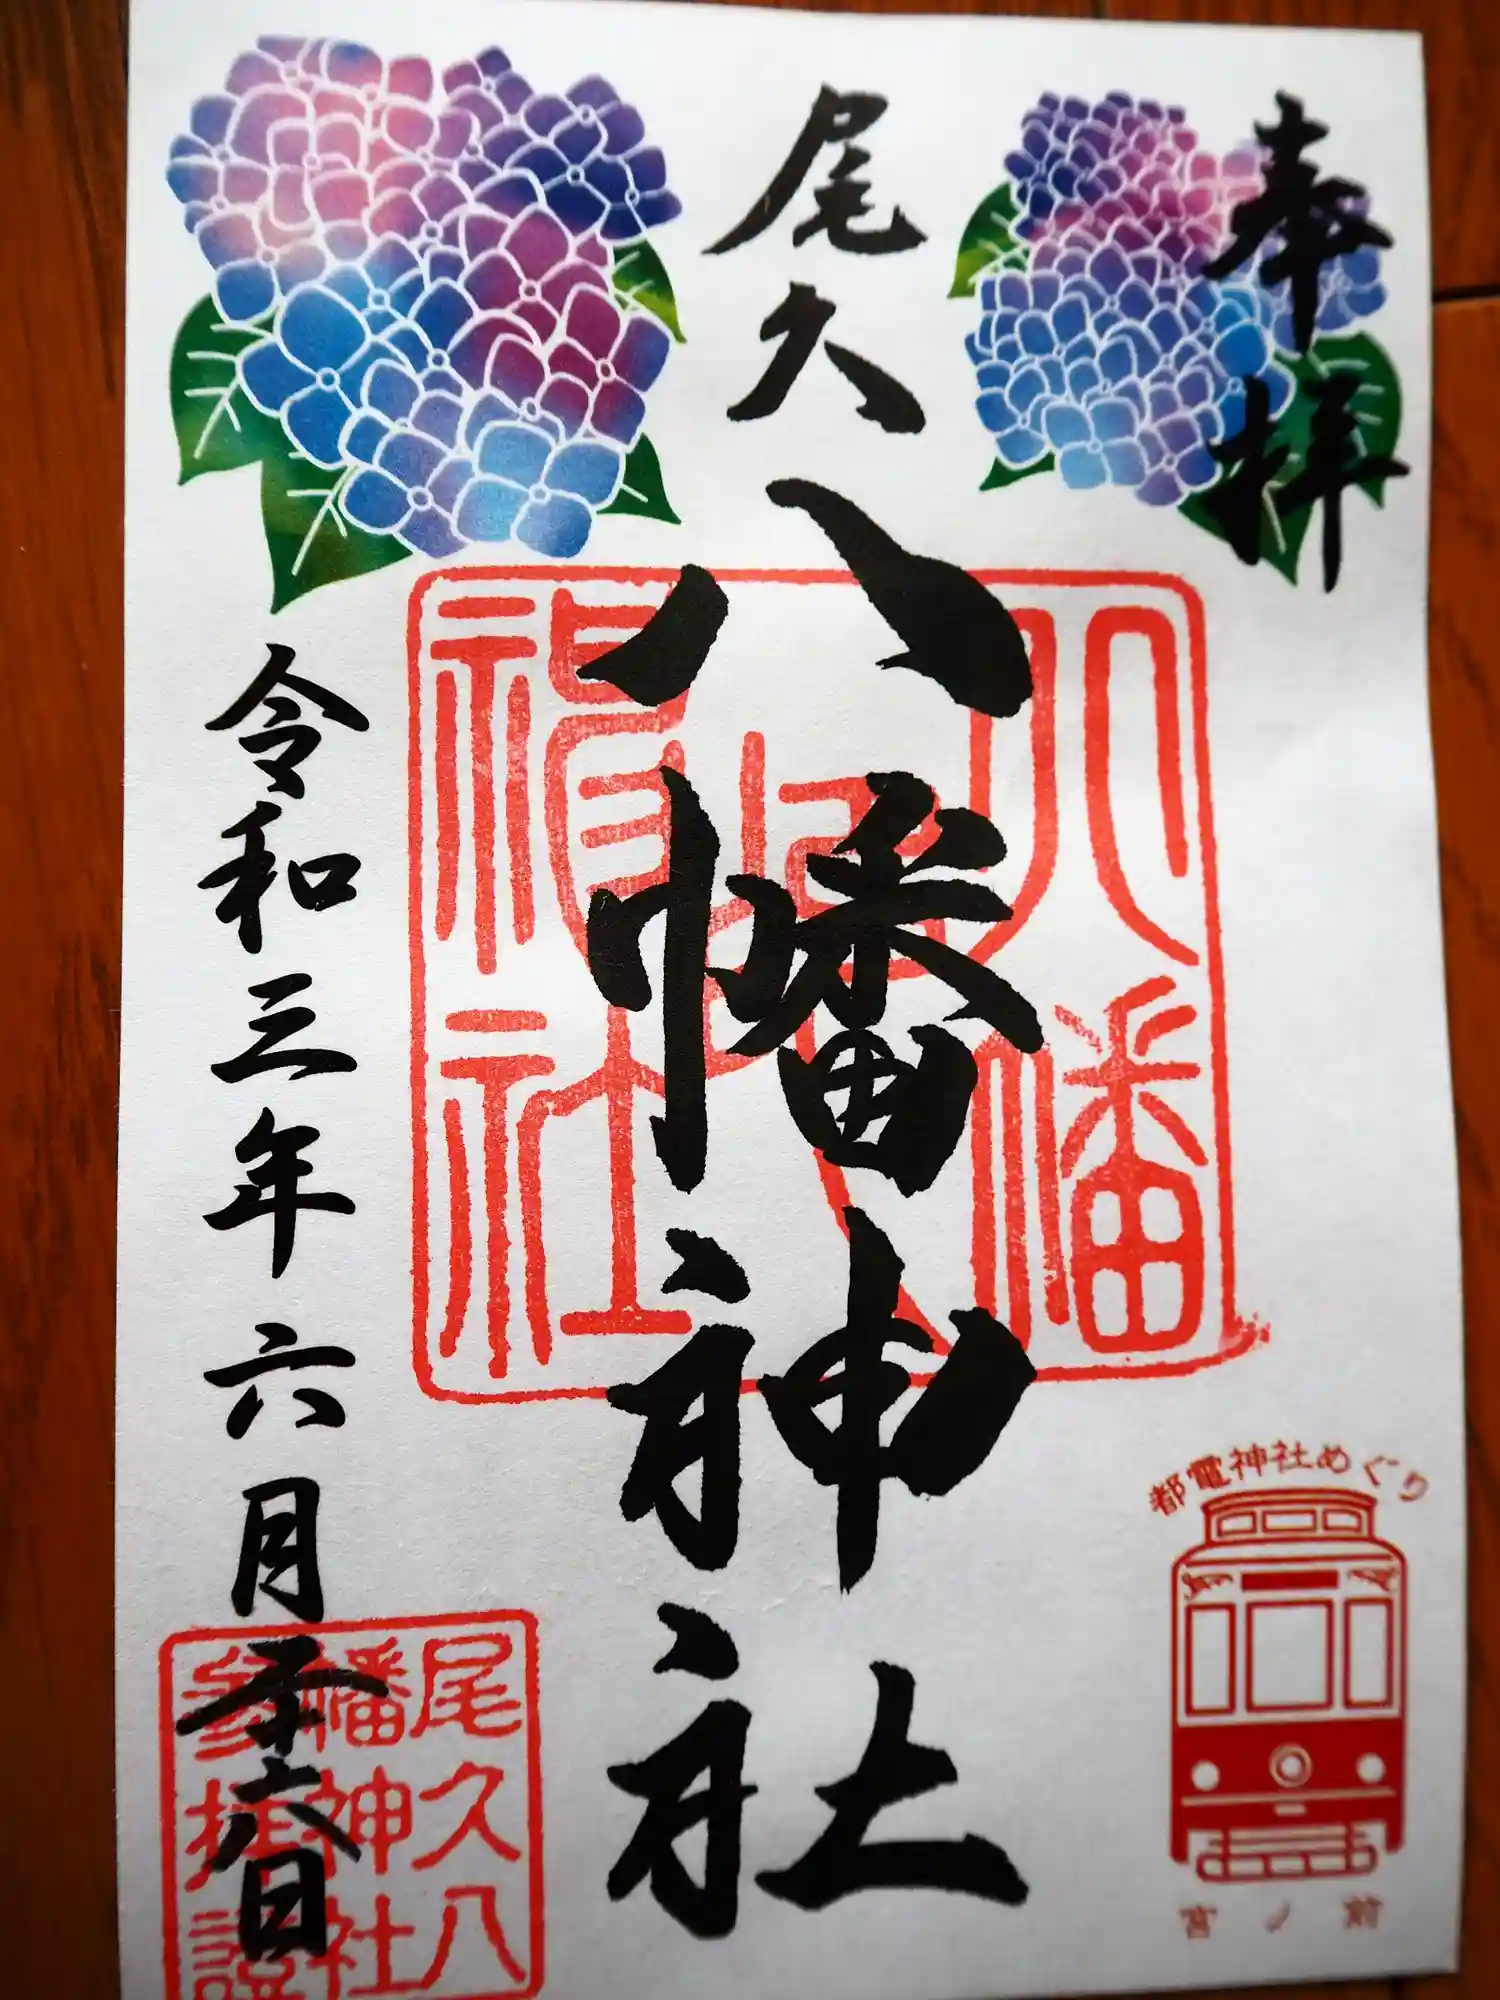 奉拝
尾久
八幡神社
令和三年六月二十六日
八幡
神社
尾久八
幡神社
参拝證
都電神社めぐり
宮ノ前